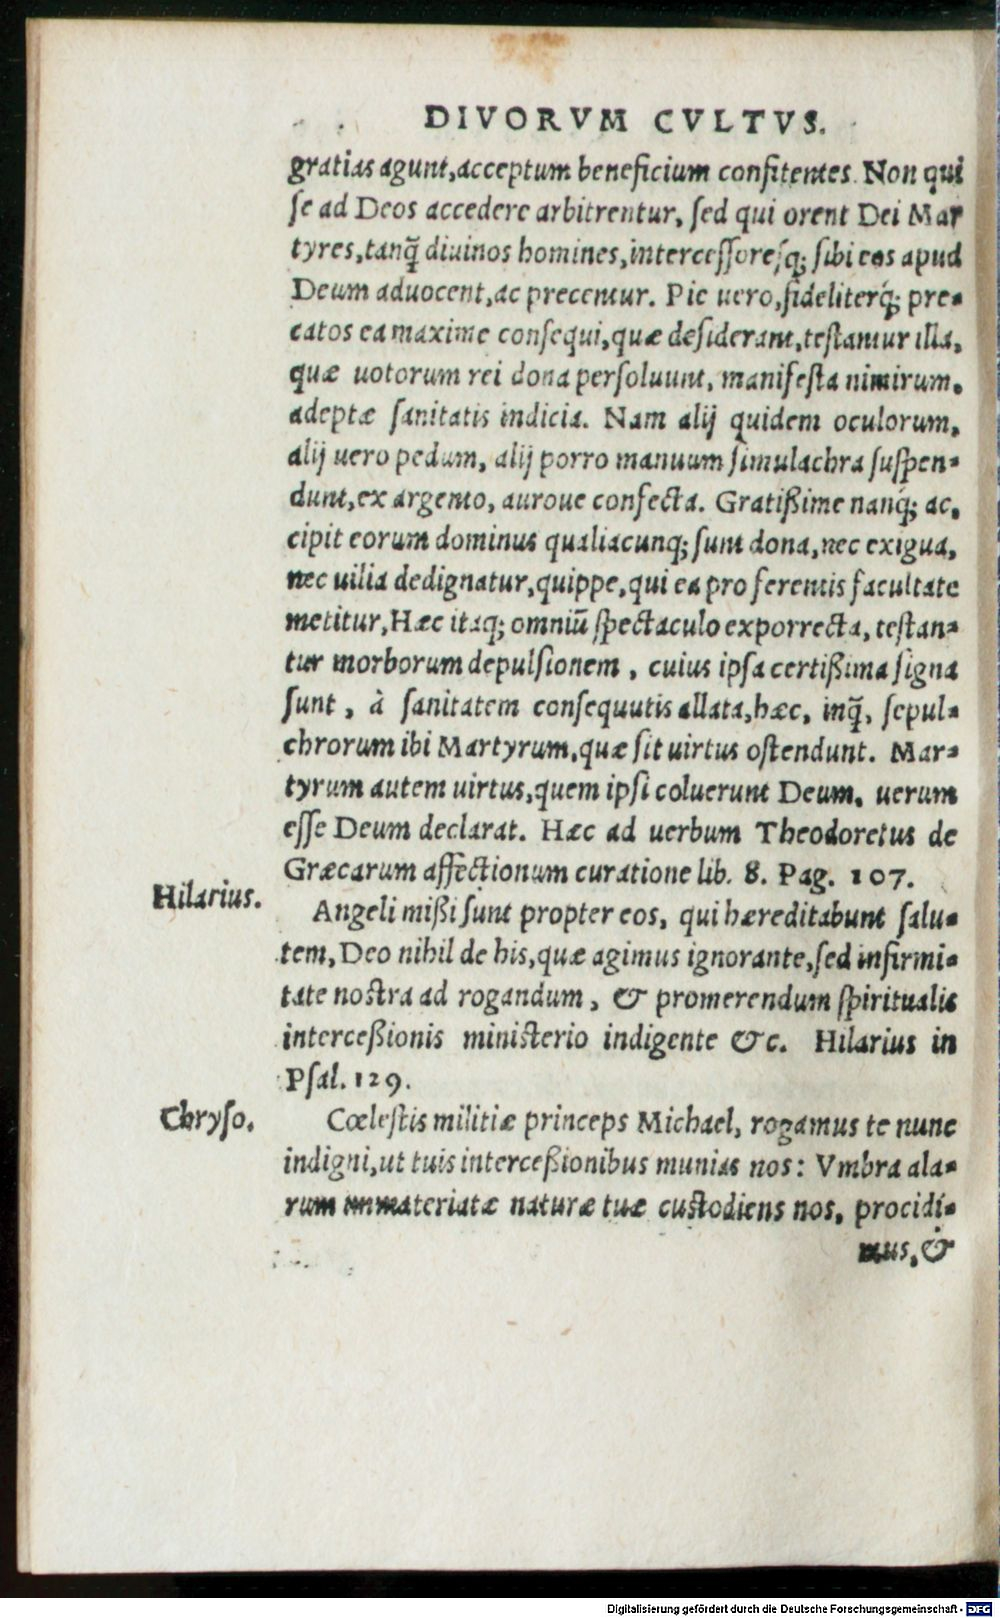 DIVORVM CVLTVS.
gratias agunt, acceptum beneficium confitentes. Non qui
ſe ad Deos accedere arbitrentur, ſed qui orent Dei Mar
tyres, tanq̃ diuinos homines, interceſſoreſq; ſibi eos apud
Deum aduocent, ac precentur. Pie uero, fideliterq́; pre-
catos ea maxime conſequi, quæ deſiderant, teſtantur illa,
quæ uotorum rei dona perſoluunt, manifeſta nimirum,
adeptæ ſanitatis indicia. Nam alij quidem oculorum,
alij uero pedum, alij porro manuum ſimulachra ſuſpen-
dunt, ex argento, auroue confecta. Gratißime nanq́; ac,
cipit eorum dominus qualiacunq; ſunt dona, nec exigua,
nec uilia dedignatur, quippe, qui ea pro ferentis facultate
metitur, Hæc itaq; omniū ſpectaculo exporrecta, teſtan-
tur morborum depulſionem, cuius ipſa certißima ſigna
ſunt, à ſanitatem conſequutis allata, hæc, inq̃, ſepul-
chrorum ibi Martyrum, quæ ſit uirtus oſtendunt. Mar-
tyrum autem uirtus, quem ipſi coluerunt Deum, uerum
eſſe Deum declarat. Hæc ad uerbum Theodoretus de
Græcarum affectionum curatione lib. 8. Pag. 107.
Hilarius.
Angeli mißi ſunt propter eos, qui hæreditabunt ſalu-
tem, Deo nihil de his, quæ agimus ignorante, ſed infirmi-
tate noſtra ad rogandum, & promerendum ſpiritualis
interceßionis miniſterio indigente &c. Hilarius in
Pſal. 129.
Chryſo.
Cœleſtis militiæ princeps Michael, rogamus te nunc
indigni, ut tuis interceßionibus munias nos: Vmbra ala-
rum immateriatæ naturæ tuæ cuſtodiens nos, procidi-
mus, &
Digitalisierung gefördert durch die Deutsche Forschungsgemeinschaft - DFG